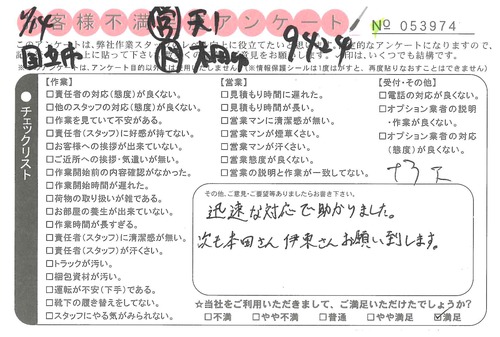 お客様不満足アンケート
№ 053974
1/14 ㊂ 天1
国立市
9424
このアンケートは、弊社作業スタッフの
【作業】
□責任者の対応(態度)が良くない。
□他のスタッフの対応(態度)が良くない。
□作業を見ていて不安がある。
□責任者(スタッフ)に好感が持てない。
□お客様への挨拶が出来ていない。
□ご近所への挨拶・気遣いが無い。
□作業開始前の内容確認がなかった。
□作業開始時間が遅れた。
□荷物の取り扱いが雑である。
□お部屋の養生が出来ていない。
□作業時間が長すぎる。
□責任者(スタッフ)に清潔感が無い。
□責任者(スタッフ)が汗くさい。
□トラックが汚い。
□梱包資材が汚い。
□運転が不安(下手)である。
□靴下の履き替えをしてない。
□スタッフにやる気がみられない。
【営業】
□見積もり時間に遅れた。
□見積もり時間が長い。
□営業マンに清潔感が無い。
□営業マンが煙草くさい。
□営業マンが汗くさい。
□営業態度が良くない。
□営業の説明と作業が一致してない。
【受付・その他】
□電話の対応が良くない。
□オプション業者の説明
・作業が良くない。
□オプション業者の対応
(態度)が良くない。
チェックリスト
その他、ご意見・ご要望等ありましたらお書き下さい。
迅速な対応で助かりました。
次も本田さん 伊東さんお願い致します。
☆当社をご利用いただきまして、ご満足いただけたでしょうか?
□不満 □やや不満 □普通 □やや満足 ☑満足